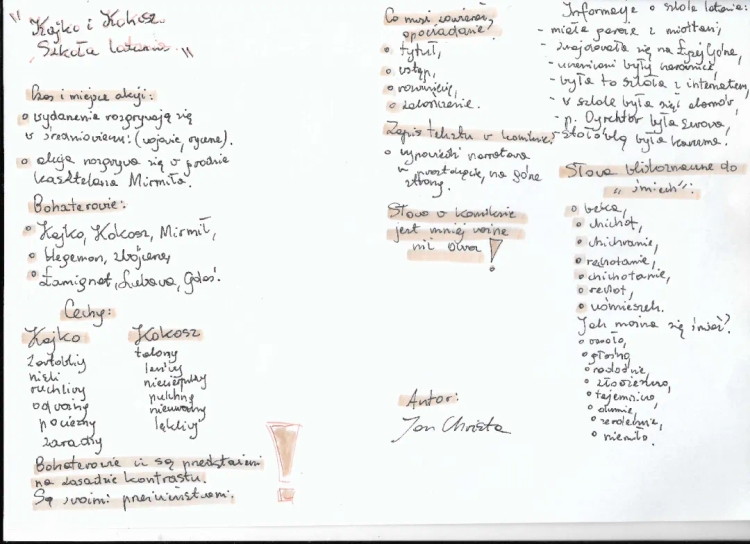 "Kajko i Kokosz.
Szkoła latania"
Czas i miejsce akcji:
o wydarzenia rozgrywają się
w średniowieczu (wojowie, rycerze).
o akcja rozgrywa się w grodzie
kasztelana Mirmiła.
Bohaterowie:
o Kajko, Kokosz, Mirmił,
o Hegemon, zbójcerze,
o Łamignat, Lubawa,
Cechy:
Kajko
żarłobliwy
niski
ruchliwy
odważny
pocieszny
zaradny
Kokosz
łakomy
leniwy
niecierpliwy
pulchny
nieuważny
lękliwy
Bohaterowie ci są przedstawieni
na zasadzie kontrastu.
Są swoimi przeciwieństwami.
!
Co musi zawierać
opowiadanie?
o tytuł,
o wstęp,
o rozwinięcie,
o zakończenie.
Zapis tekstu w komiksie:
o wypowiedzi narratora
w prostokącie, na górze
strony.
Słowo w komiksie
jest mniej ważne
niż obraz!
Autor:
Jan Christa
Informacje o szkole latania:
- miała parcie z miotłami,
- znajdowała się na Łysej Górze,
- uczniami były czarownice,
- była to szkoła z internatem,
- w szkole było sześć
- p. Dyrektor była surowa,
- stołówką była karczma.
Słowa bliskoznaczne do
"śmiech":
o beka,
o chichot,
o chichranie,
o rechotanie,
o chichotanie,
o rechot,
o uśmieszek.
Jak można się śmiać?
o wesoło,
o głośno,
o radośnie,
o złośliwie,
o tajemniczo,
o dumnie,
o serdecznie,
o niemiło.